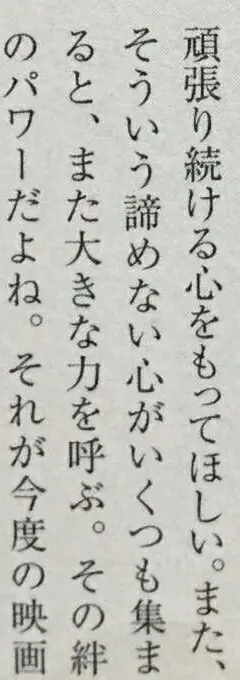 頑張り続ける心をもってほしい。また、
そういう諦めない心がいくつも集ま
ると、また大きな力を呼ぶ。その絆
のパワーだよね。それが今度の映画